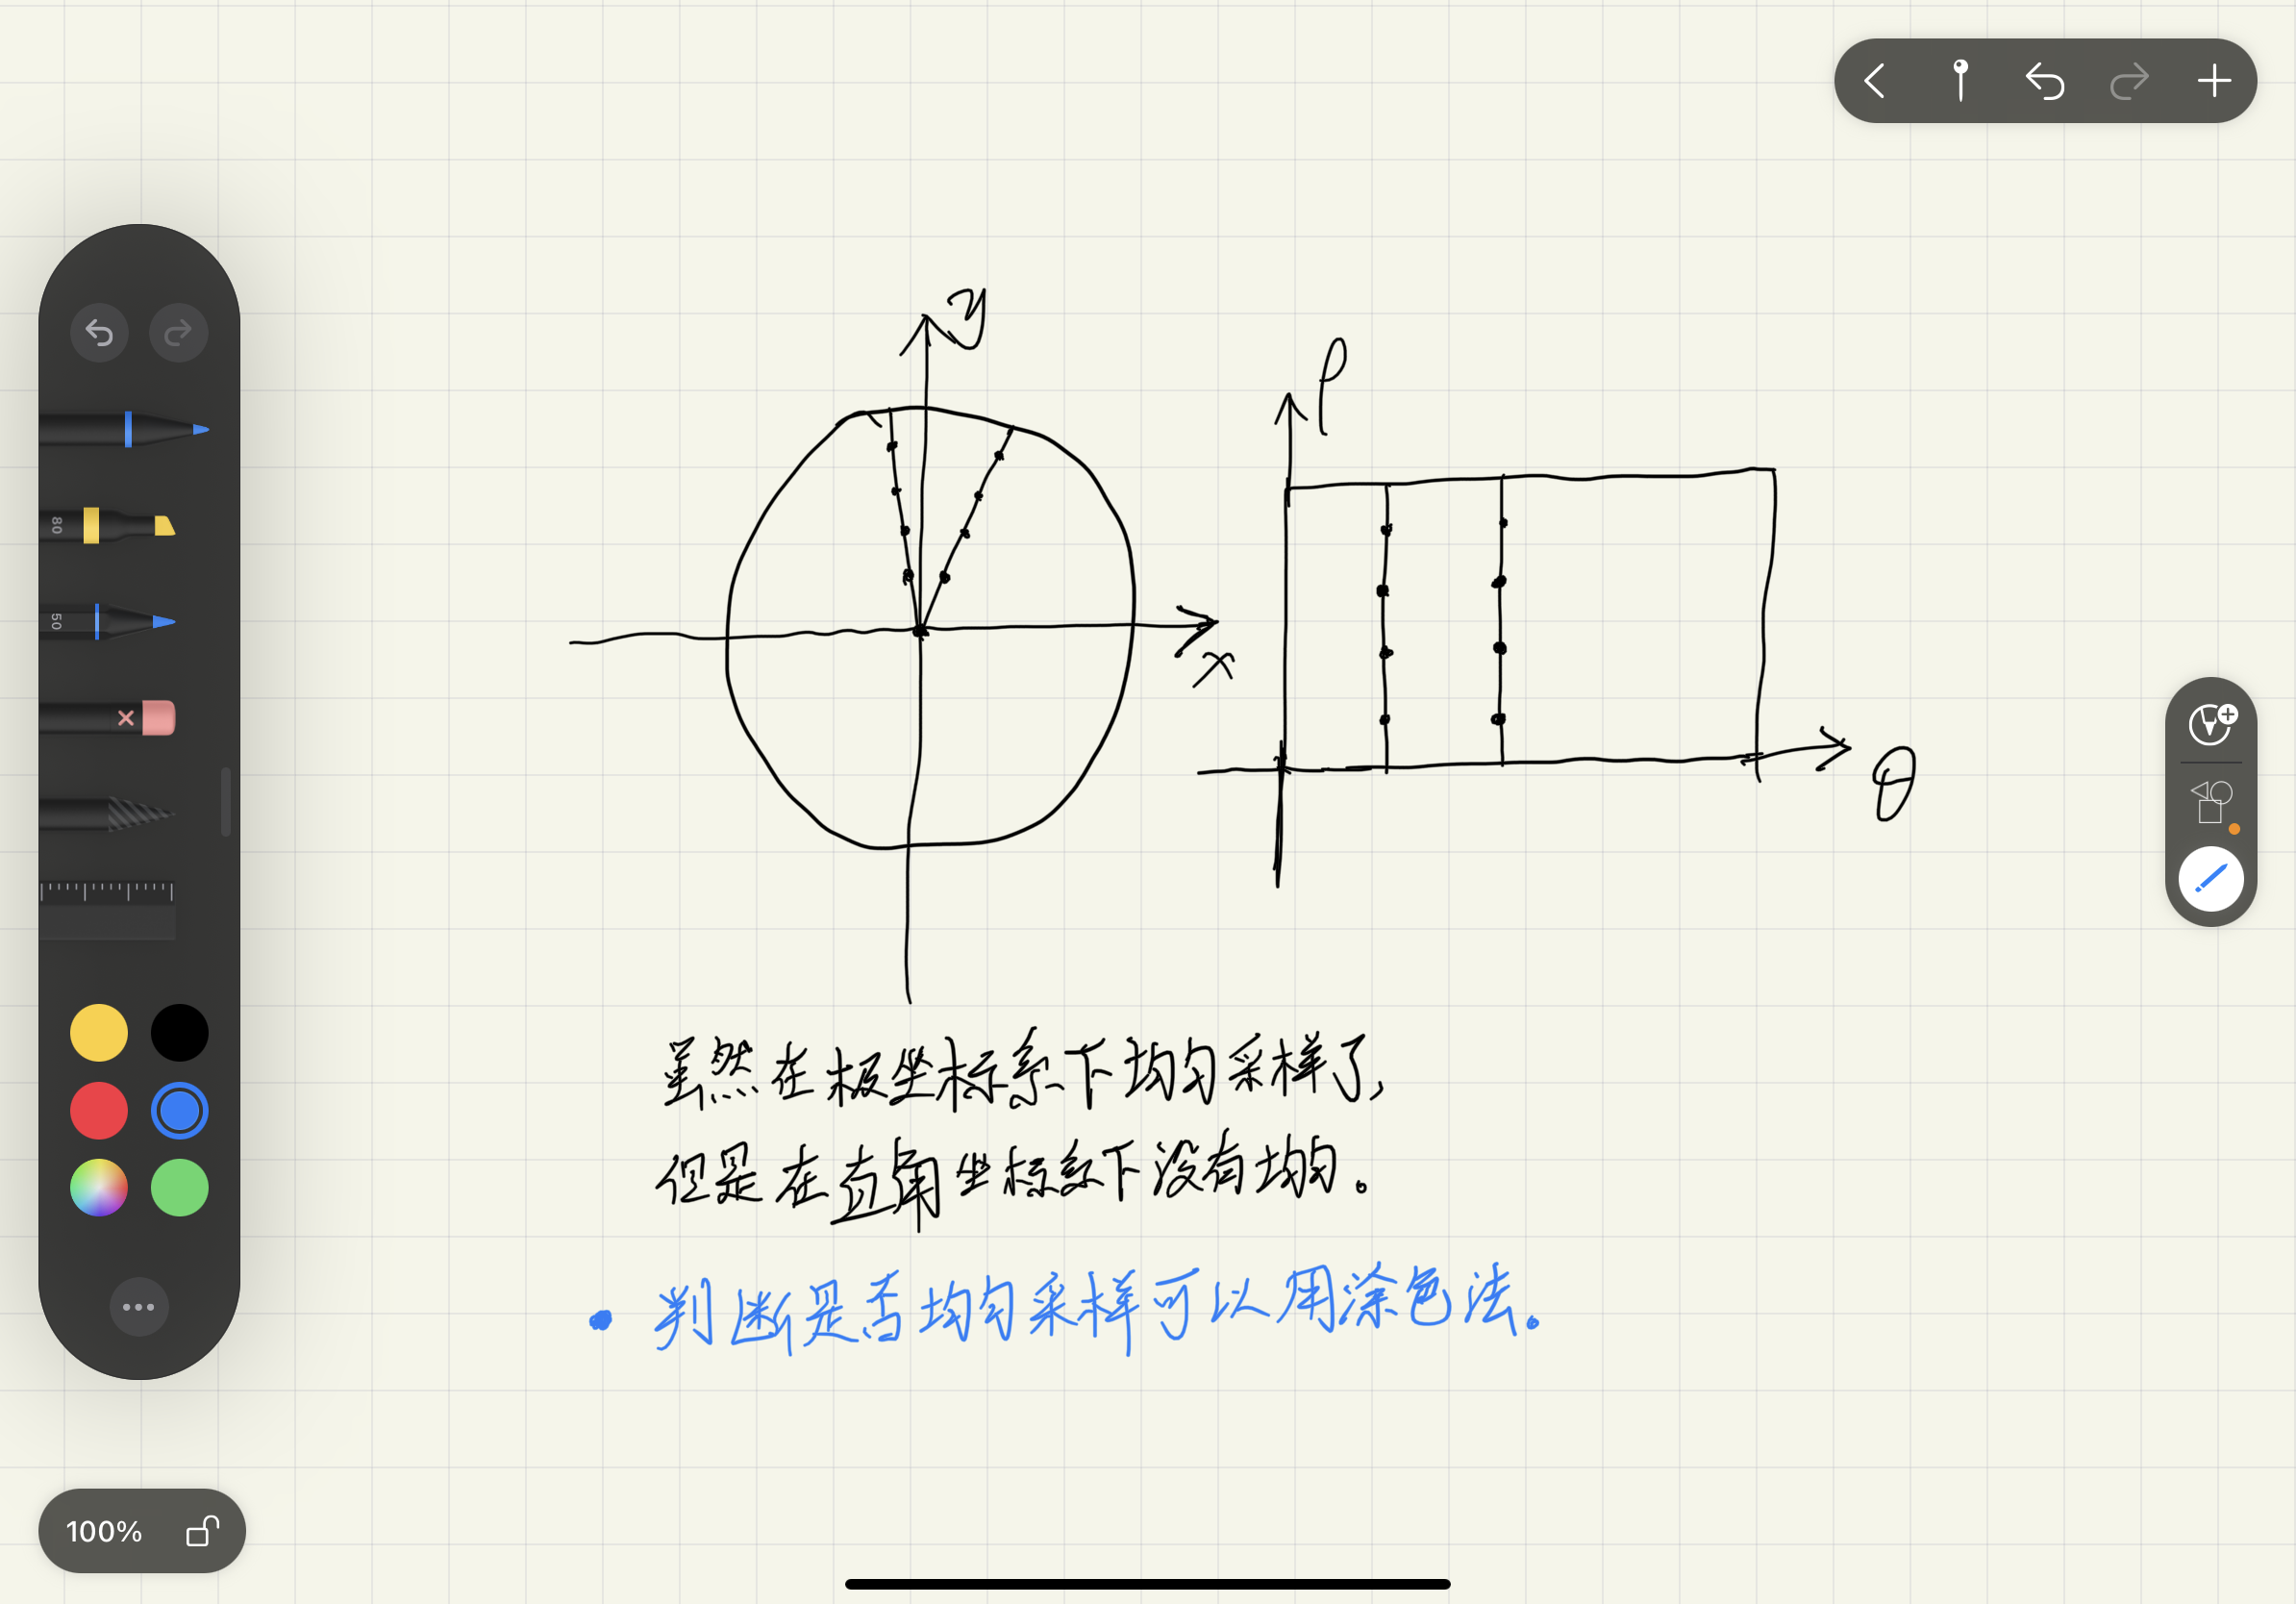 y
ρ
x
θ
虽然在极坐标系下均匀采样了,
但是在直角坐标系下没有均匀。
• 判断是否均匀采样可以用涂色法。
80
50
100%